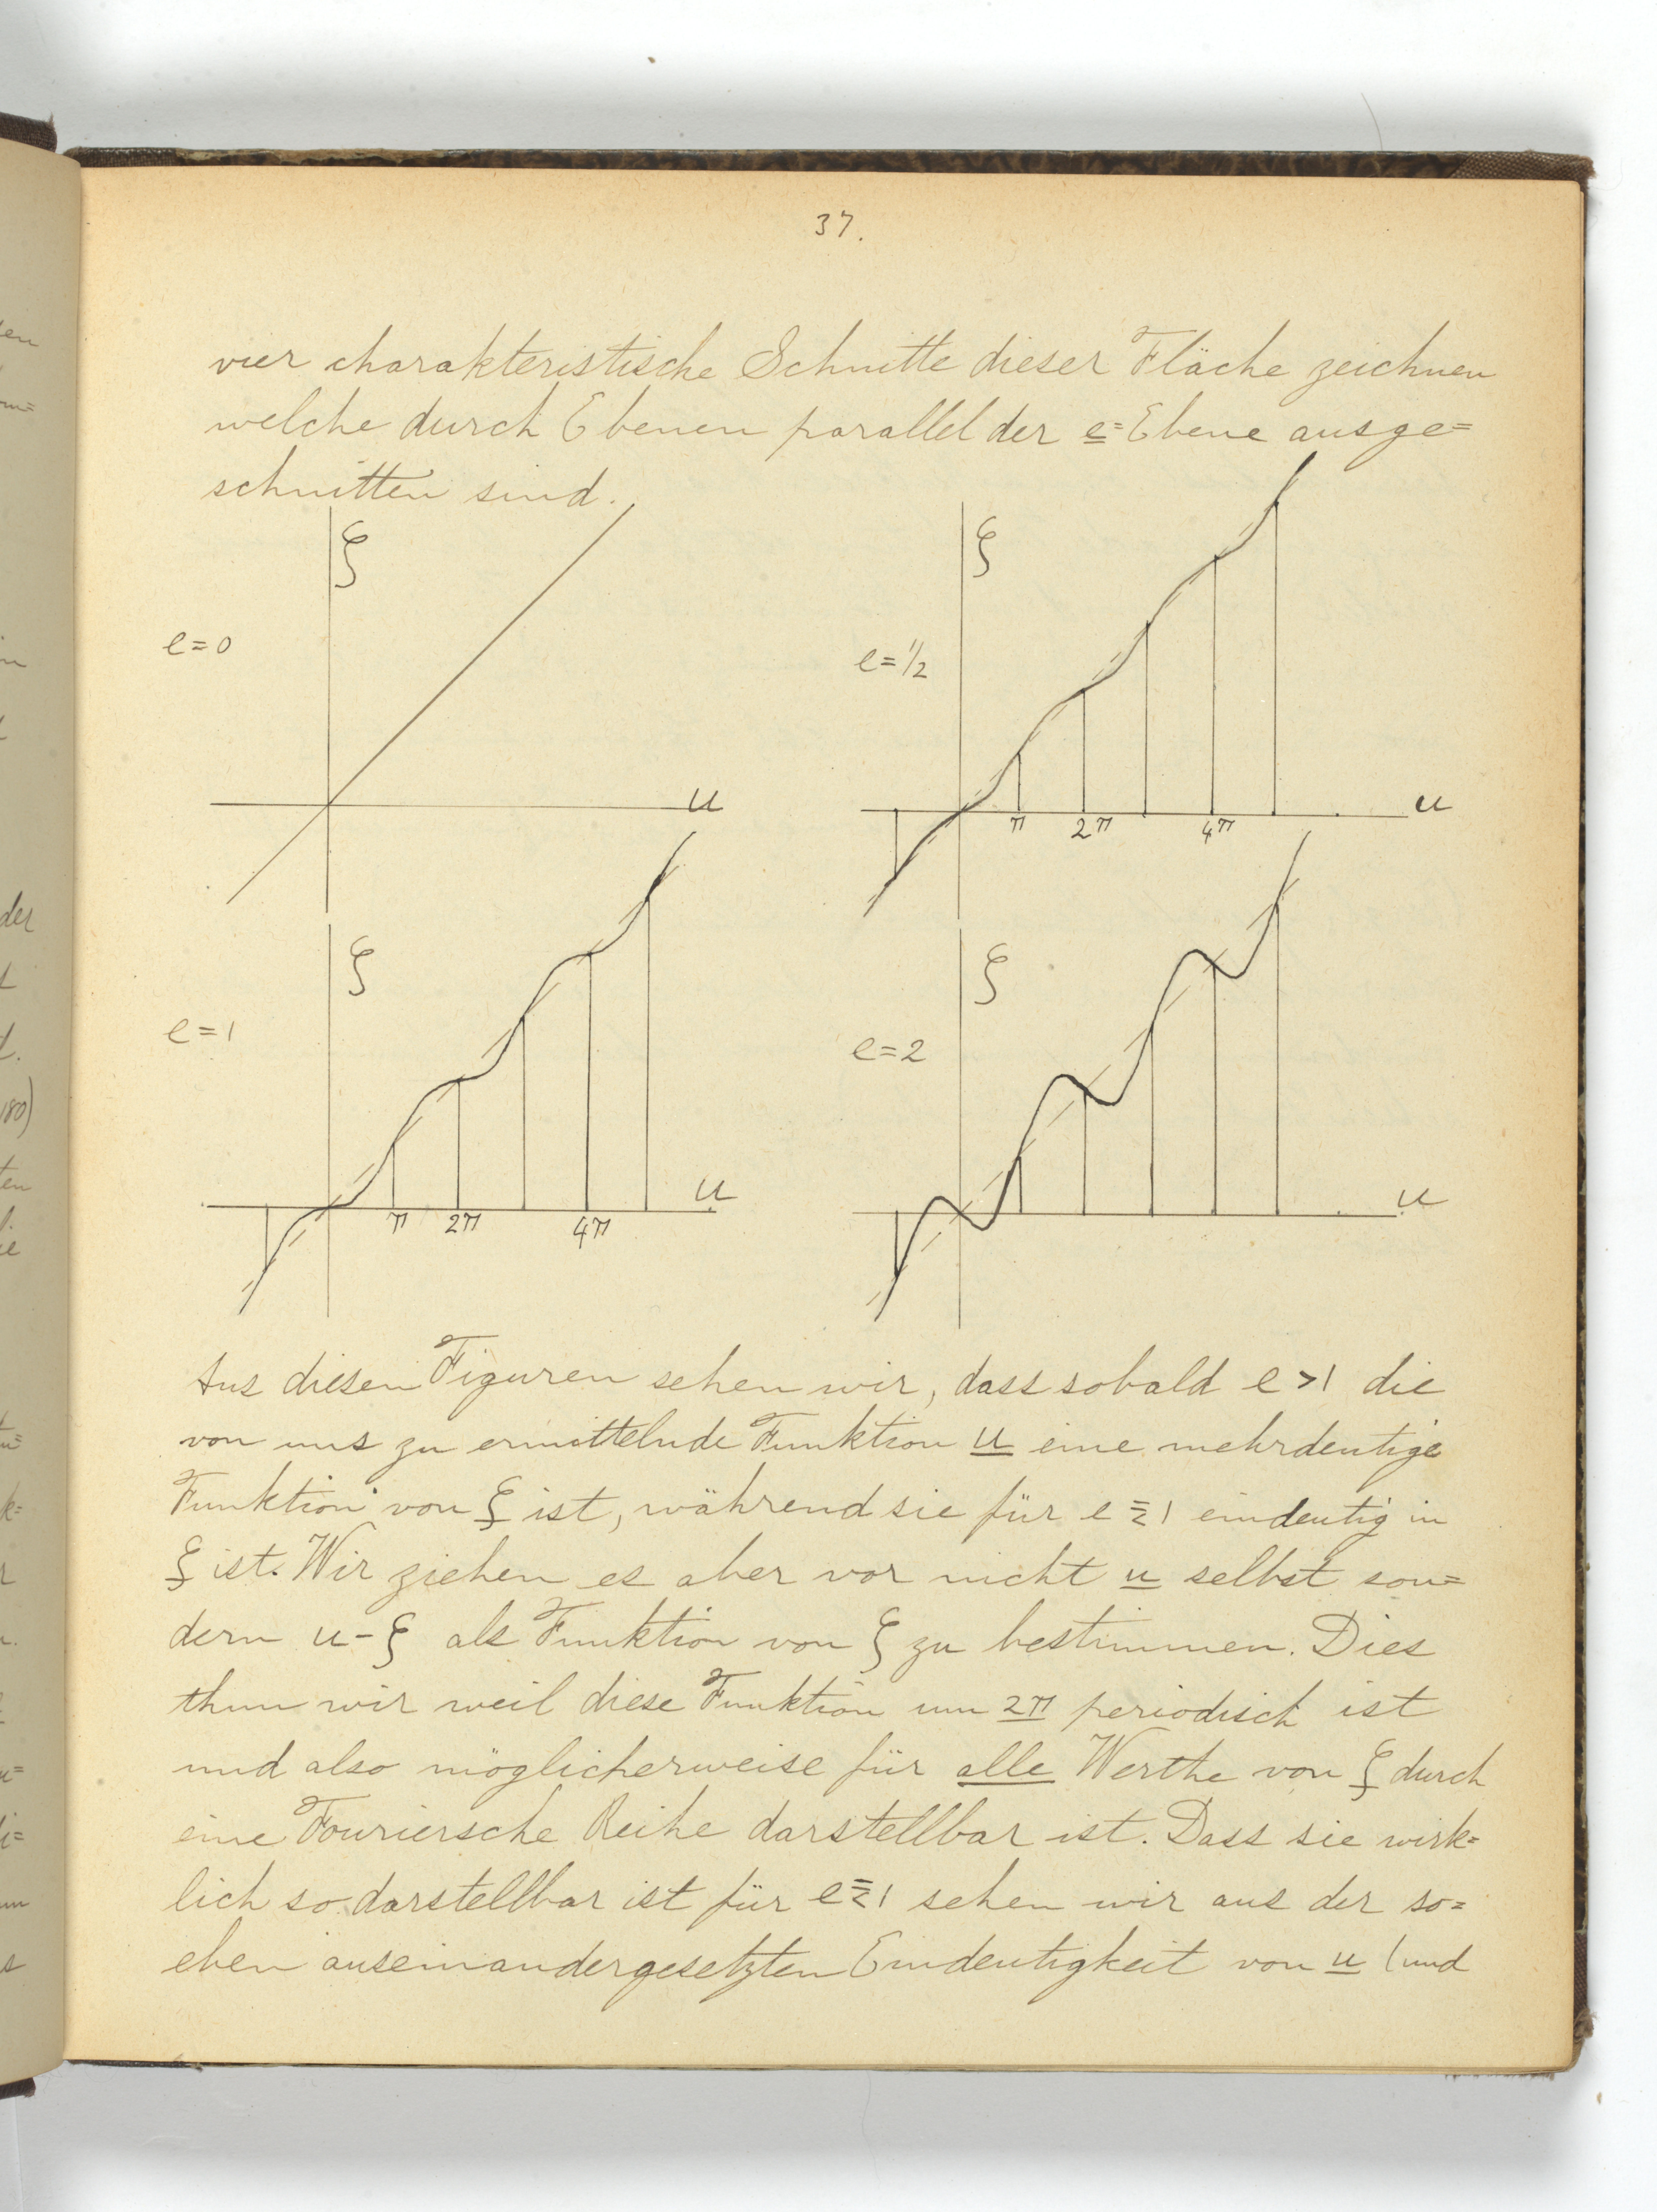 37.
vier charakteristische Schnitte dieser Fläche zeichnen
welche durch Ebenen parallel der e=Ebene ausge=
schnitten sind.
ξ
e=0
u
ξ
e=1/2
π 2π 4π
u
ξ
e=1
π 2π 4π
u
ξ
e=2
u
Aus diesen Figuren sehen wir, dass sobald e>1 die
von uns zu ermittelnde Funktion u eine mehrdeutige
Funktion von ξ ist, während sie für e ≦ 1 eindeutig in
ξ ist. Wir ziehen es aber vor nicht u selbst son=
dern u-ξ als Funktion von ξ zu bestimmen. Dies
thun wir weil diese Funktion um 2π periodisch ist
und also möglicherweise für alle Werthe von ξ durch
eine Fouriersche Reihe darstellbar ist. Dass sie wirk=
lich so darstellbar ist für e≦1 sehen wir aus der so=
eben auseinandergesetzten Eindeutigkeit von u (und
der
180)